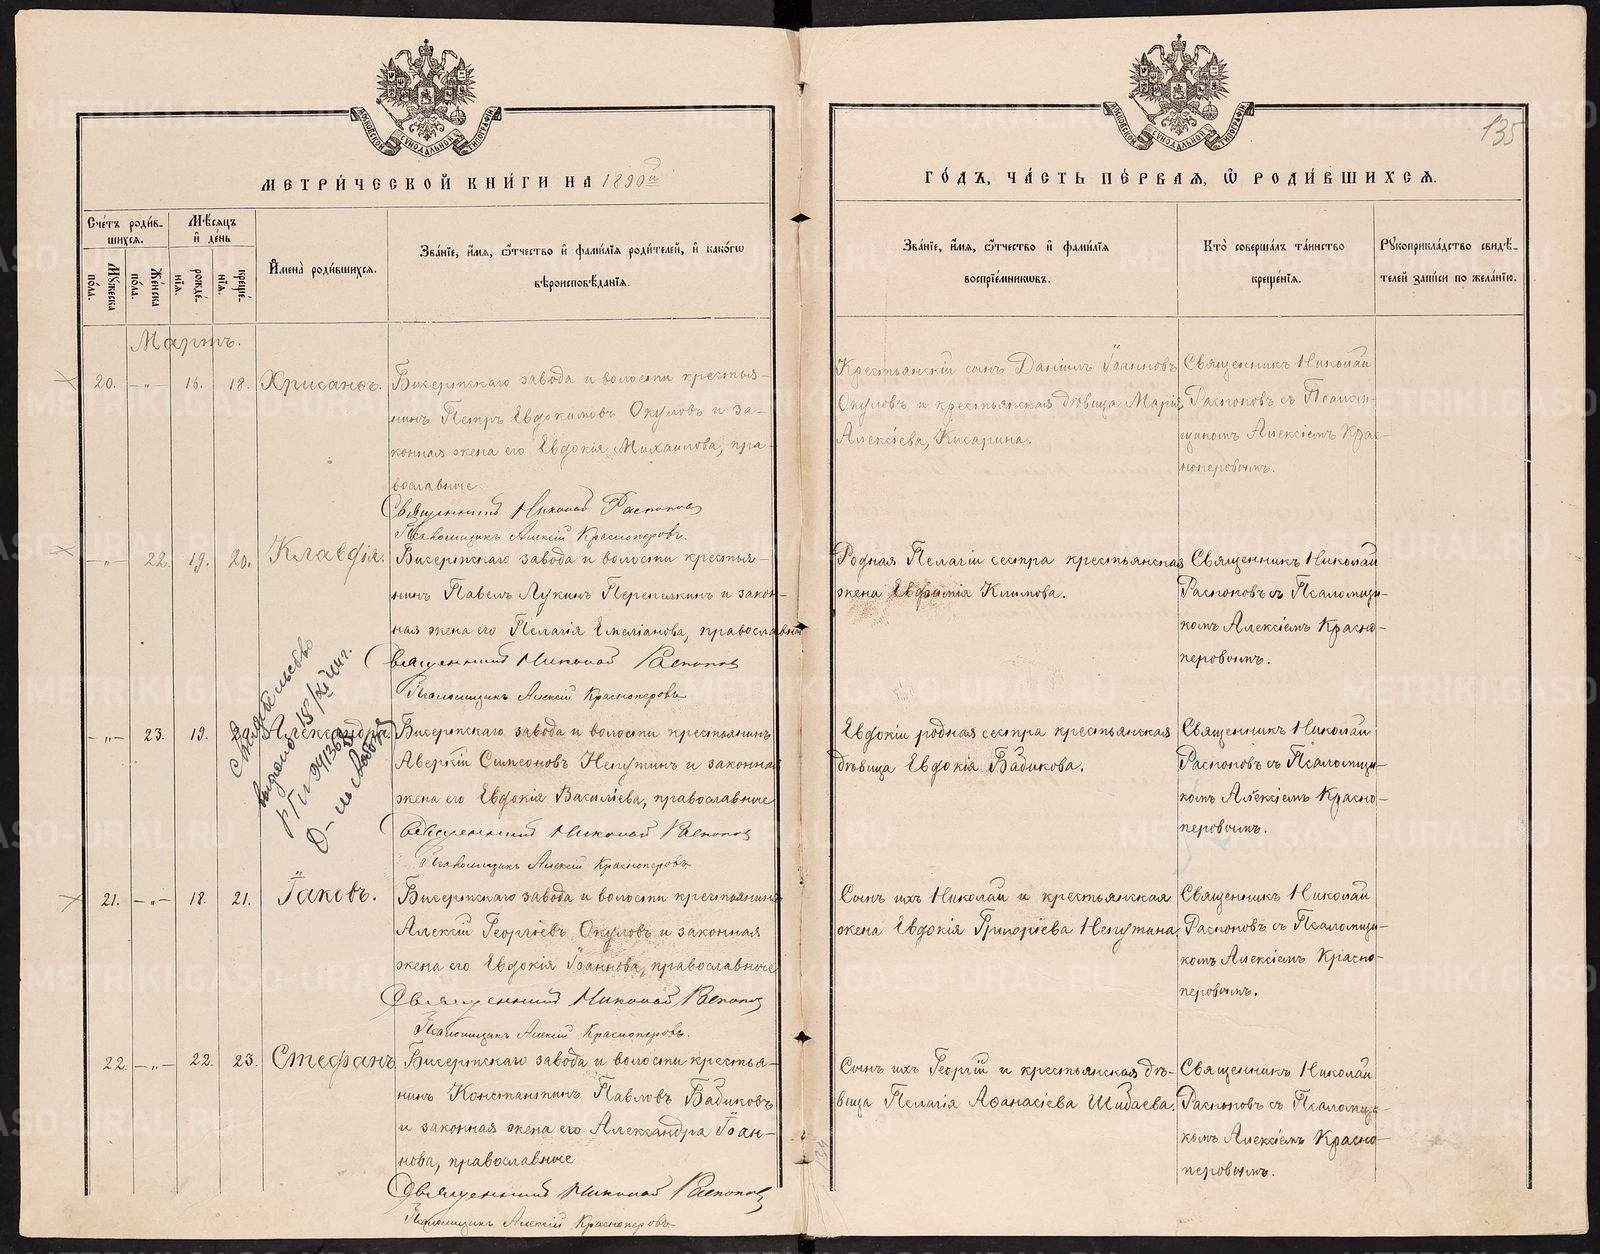 МОСКОВСКОЙ СѴНОДАЛЬНОЙ ТИПОГРАФІИ
МЕТРИ́ЧЕСКОЙ КНИ́ГИ НА 1890й
Сче́тъ роди́в-
шихся.
Мѣ́сяцъ
и҆ де́нь
Му́жеска
по́ла.
Же́нска
по́ла.
рожде́-
нїя.
креще́-
нїя.
И҆мена̀ роди́вшихся.
Зва́нїе, и҆́мя, ѻ҆́тчество и҆ фами́лїя роди́телей, и҆ како́гѡ
вѣроисповѣ́данїя.
Мартъ.
20. -„- 16. 18. Хрисанѳъ. Бисертскаго завода и волости крестья-
нинъ Петръ Евдокимовъ Окуловъ и за-
конная жена его Евдокія Михаилова, пра-
вославные
Священникъ Николай Распоповъ
Псаломщикъ Алексій Красноперовъ.
-„- 22. 19. 20. Клавдія. Бисертскаго завода и волости крестья-
нинъ Павелъ Лукинъ Перепелкинъ и закон-
ная жена его Пелагія Емеліанова, православные
Священникъ Николай Распоповъ
Псаломщикъ Алексій Красноперовъ
-„- 23. 19. Александра. Бисертскаго завода и волости крестьянинъ
Аверкій Симеоновъ Непутинъ и законная
жена его Евдокія Василіева, православные
Священникъ Николай Распоповъ
Псаломщикъ Алексій Красноперовъ
Свидетельство
выдано 18
21. -„- 18. 21. Іаковъ. Бисертскаго завода и волости крестьянинъ
Алексій Георгіевъ Окуловъ и законная
жена его Евдокія Іоаннова, православные
Священникъ Николай Распоповъ
Псаломщикъ Алексій Красноперовъ.
22. -„- 22. 23. Стефанъ. Бисертскаго завода и волости крестья-
нинъ Константинъ Павловъ Бадиковъ
и законная жена его Александра Іоан-
нова, православные
Священникъ Николай Распоповъ
Псаломщикъ Алексій Красноперовъ
135
МОСКОВСКОЙ СѴНОДАЛЬНОЙ ТИПОГРАФІИ
ГО́ДЪ, ЧА́СТЬ ПЕ́РВАЯ, Ѽ РОДИ́ВШИХСЯ.
Зва́нїе, и҆́мя, ѻ҆́тчество и҆ фами́лїя
воспрїе́мникѡвъ.
Кто̀ соверша́лъ та́инство
креще́нїя.
Рꙋкоприкла́дство свидѣ́-
телей за́писи по жела́нїю.
Крестьянскій сынъ Даніилъ Іоанновъ
Окуловъ и крестьянская дѣвица Марія
Алексіева, Кисарина.
Священникъ Николай
Распоповъ съ Псалом-
щикомъ Алексіемъ Крас-
ноперовымъ.
Родная Пелагіи сестра крестьянская
жена Евфимія Климова.
Священникъ Николай
Распоповъ съ Псаломщи-
комъ Алексіемъ Красно-
перовымъ.
Евдокіи родная сестра крестьянская
дѣвица Евдокія Бадикова.
Священникъ Николай
Распоповъ съ Псаломщи-
комъ Алексіемъ Красно-
перовымъ.
Сынъ ихъ Николай и крестьянская
жена Евдокія Григоріева Непутина.
Священникъ Николай
Распоповъ съ Псаломщи-
комъ Алексіемъ Красно-
перовымъ.
Сынъ ихъ Георгій и крестьянская дѣ-
вица Пелагія Аѳанасіева Шибаева.
Священникъ Николай
Распоповъ съ Псаломщи-
комъ Алексіемъ Красно-
перовымъ.
134
METRIKI.GASO-URAL.RU